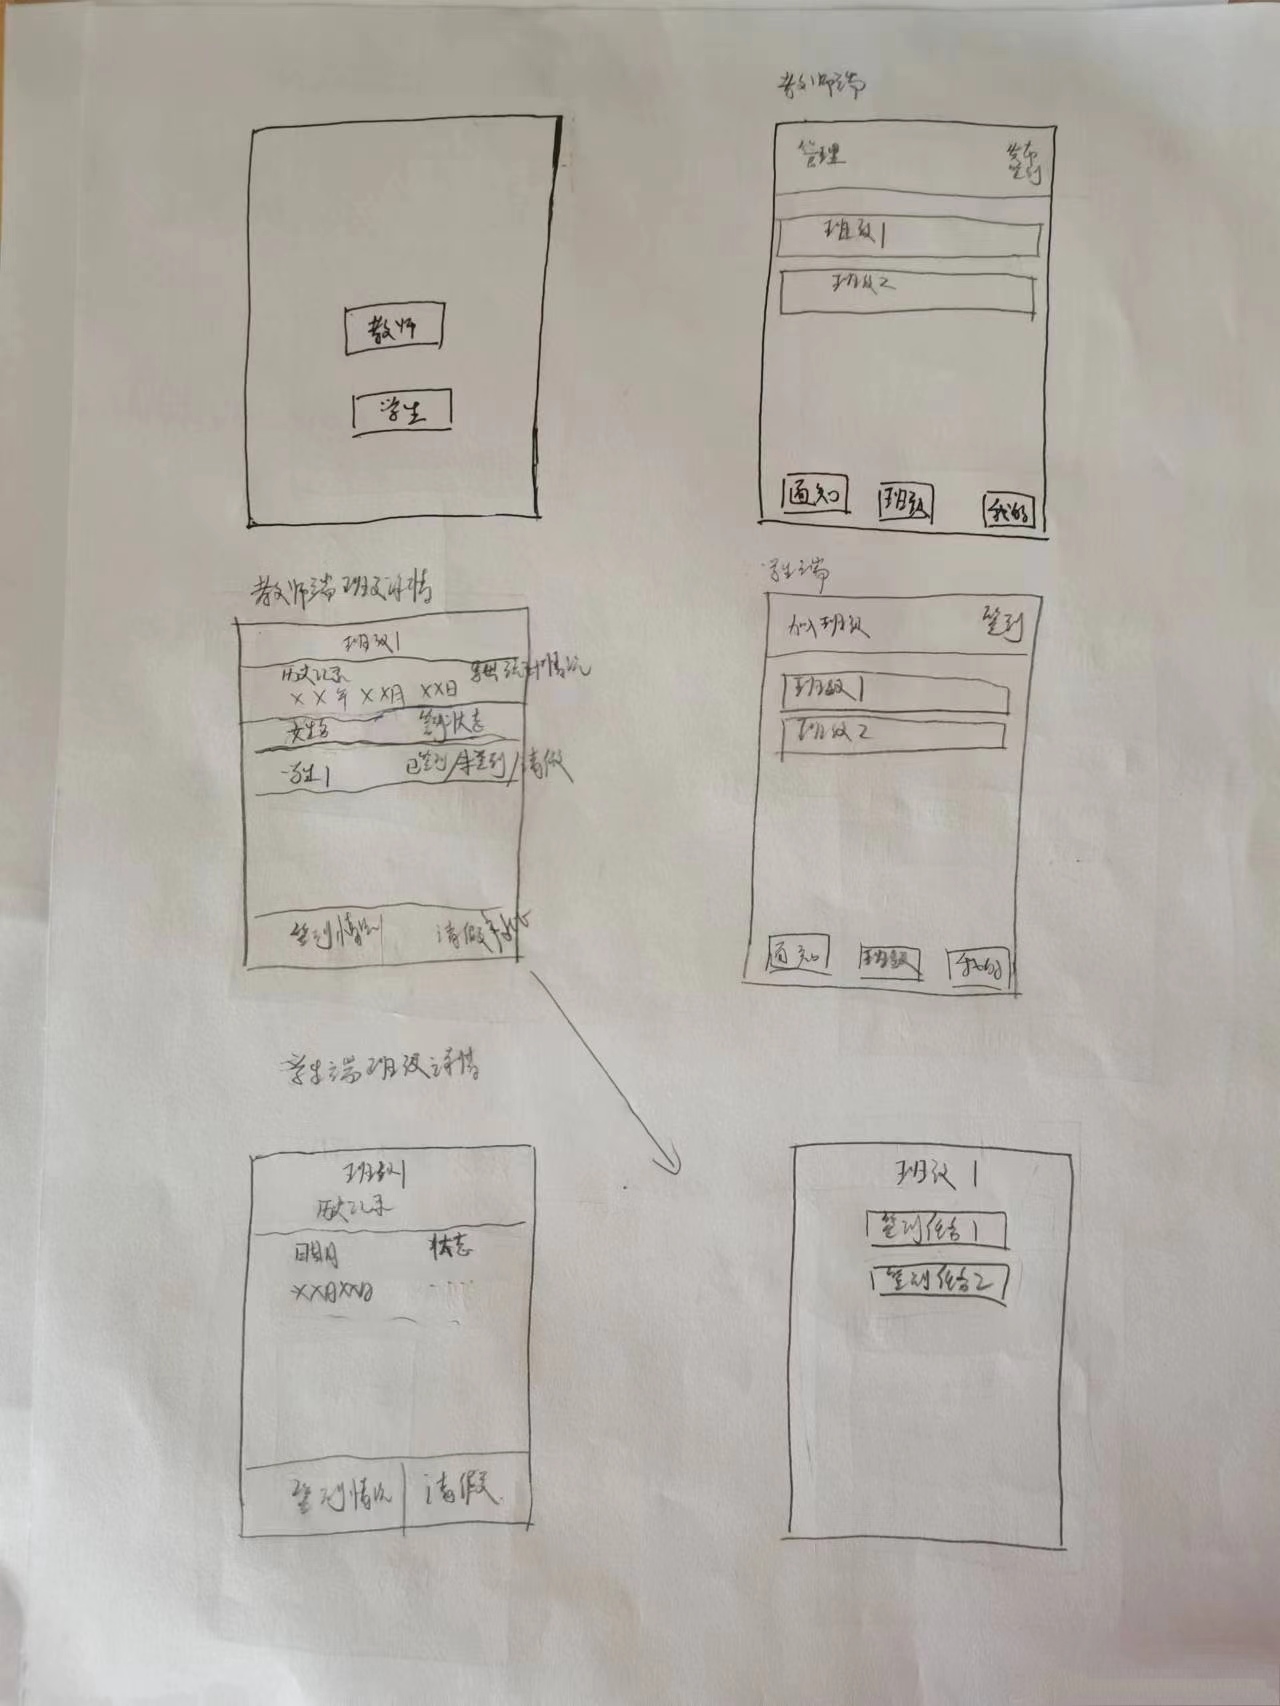 教师
学生
教师端
管理
发布
签到
班级1
班级2
通知 班级 我的
教师端班级详情
班级1
历史记录 导出统计情况
XX年XX月XX日
签到状态
学生1 已签到/未签到/请假
签到情况 请假
学生端
加入班级 签到
班级1
班级2
通知 班级 我的
学生端班级详情
班级1
历史记录
日期 状态
XX月XX日
签到情况 请假
班级1
签到任务1
签到任务2